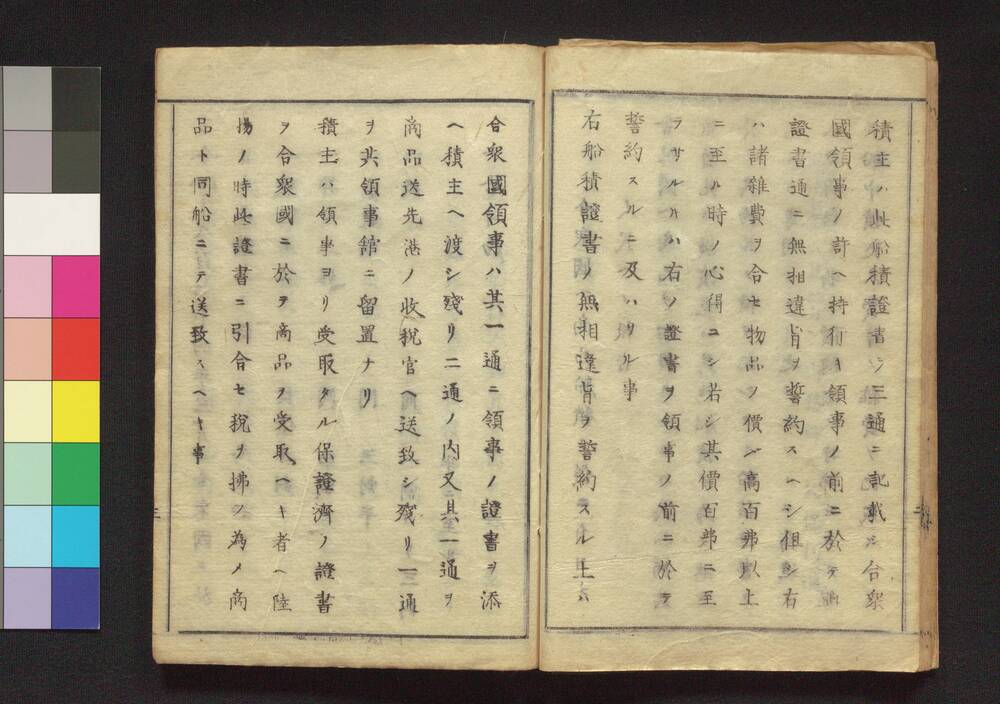 積主ハ此船積證書ヲ三通ニ記載シ合衆
國領事ノ許ヘ持行キ領事ノ前ニ於テ船
證書通ニ無相違旨ヲ誓約スヘシ但シ右
ハ諸雜費ヲ合セ物品ノ價高百弗以上
ニ至ル時ノ心得ニシ若シ其價百弗ニ至
ラサルハ右ノ證書ヲ領事ノ前ニ於テ
誓約スルニ及ハサル事
右船積證書ノ無相違旨ヲ誓約スル上ハ
合衆國領事ハ其一通ニ領事ノ證書ヲ添
ヘ積主ヘ渡シ殘リ二通ノ内又其一通ヲ
商品送先港ノ收税官ヘ送致シ殘リ一通
ヲ其領事館ニ留置ナリ
積主ハ領事ヨリ受取タル保證濟ノ證書
ヲ合衆國ニ於テ商品ヲ受取ヘキ者ヘ陸
揚ノ時此證書ニ引合セ税ヲ拂フ為メ商
品ト同船ニテ送致スヘキ事